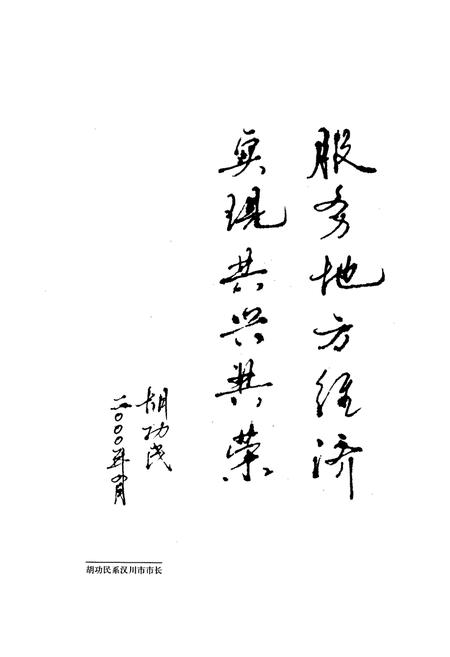 服务地方经济
实现共兴共荣
胡功民
二〇〇〇年八月
胡功民系汉川市市长